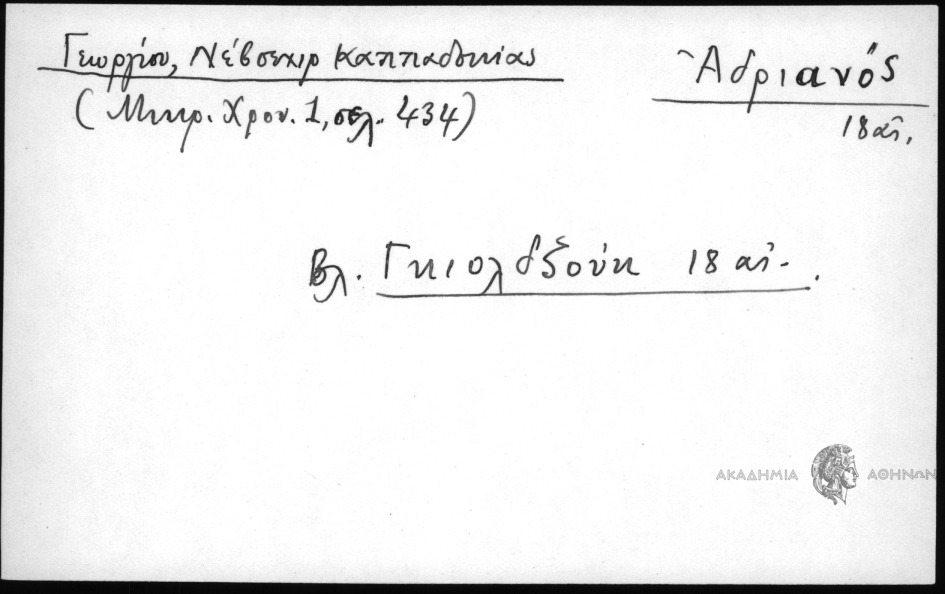 Γεωργίου, Νέβσεχιρ Καππαδοκίας
Ἀδριανός
(Μικρ. Χρον. 1, σελ. 434)
18 αἰ.
Βλ. Γκιολδζούκ 18 αἰ.
ΑΚΑΔΗΜΙΑ ΑΘΗΝΩΝ